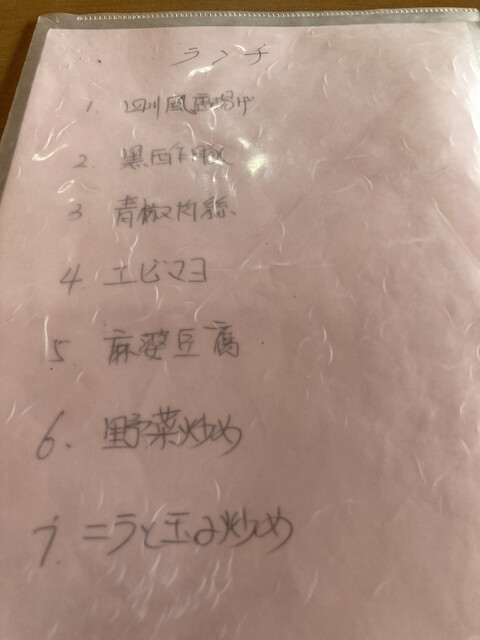 ランチ
1. 四川風唐揚げ
2 黒酢酢豚
3 青椒肉絲
4 エビマヨ
5 麻婆豆腐
6. 野菜炒め
7. ニラと玉子炒め